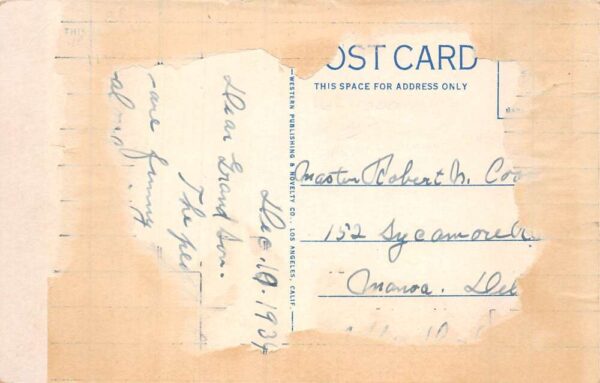 THIS
POST CARD
THIS SPACE FOR ADDRESS ONLY
WESTERN PUBLISHING & NOVELTY CO., LOS ANGELES, CALIF.
Dec. 19. 1934
Dear Grand Son.
The
are funny
Master Robert N. Coo
152 Sycamore
Manoa. Del